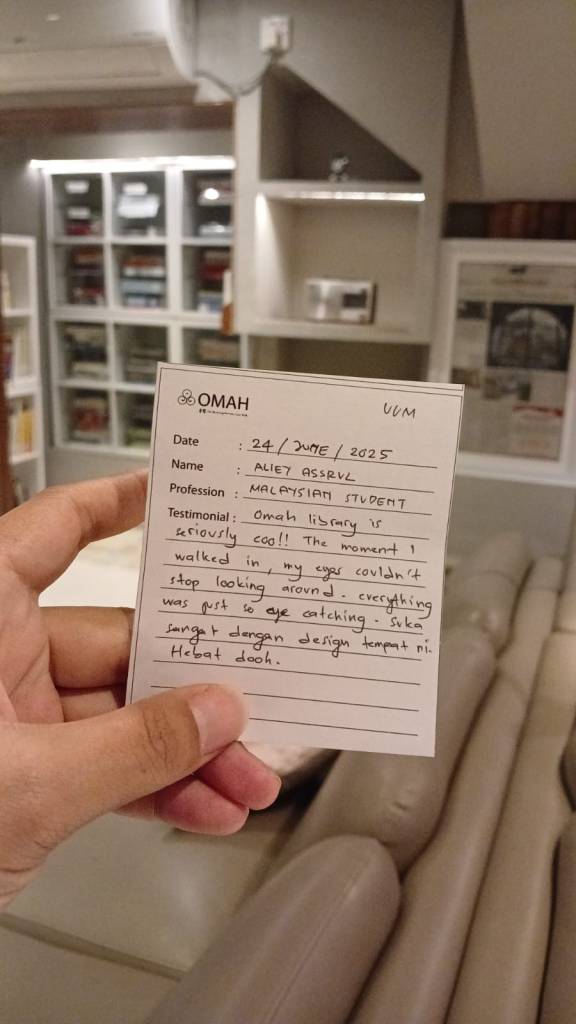 OMAH
UUM
Date : 24 / JUNE / 2025
Name : ALIEY ASSRUL
Profession : MALAYSIAN STUDENT
Testimonial : Omah library is
seriously coo!! The moment I
walked in, my eyes couldn't
stop looking around. everything
was just so eye catching. Suka
sangat dengan design tempat ni.
Hebat dooh.